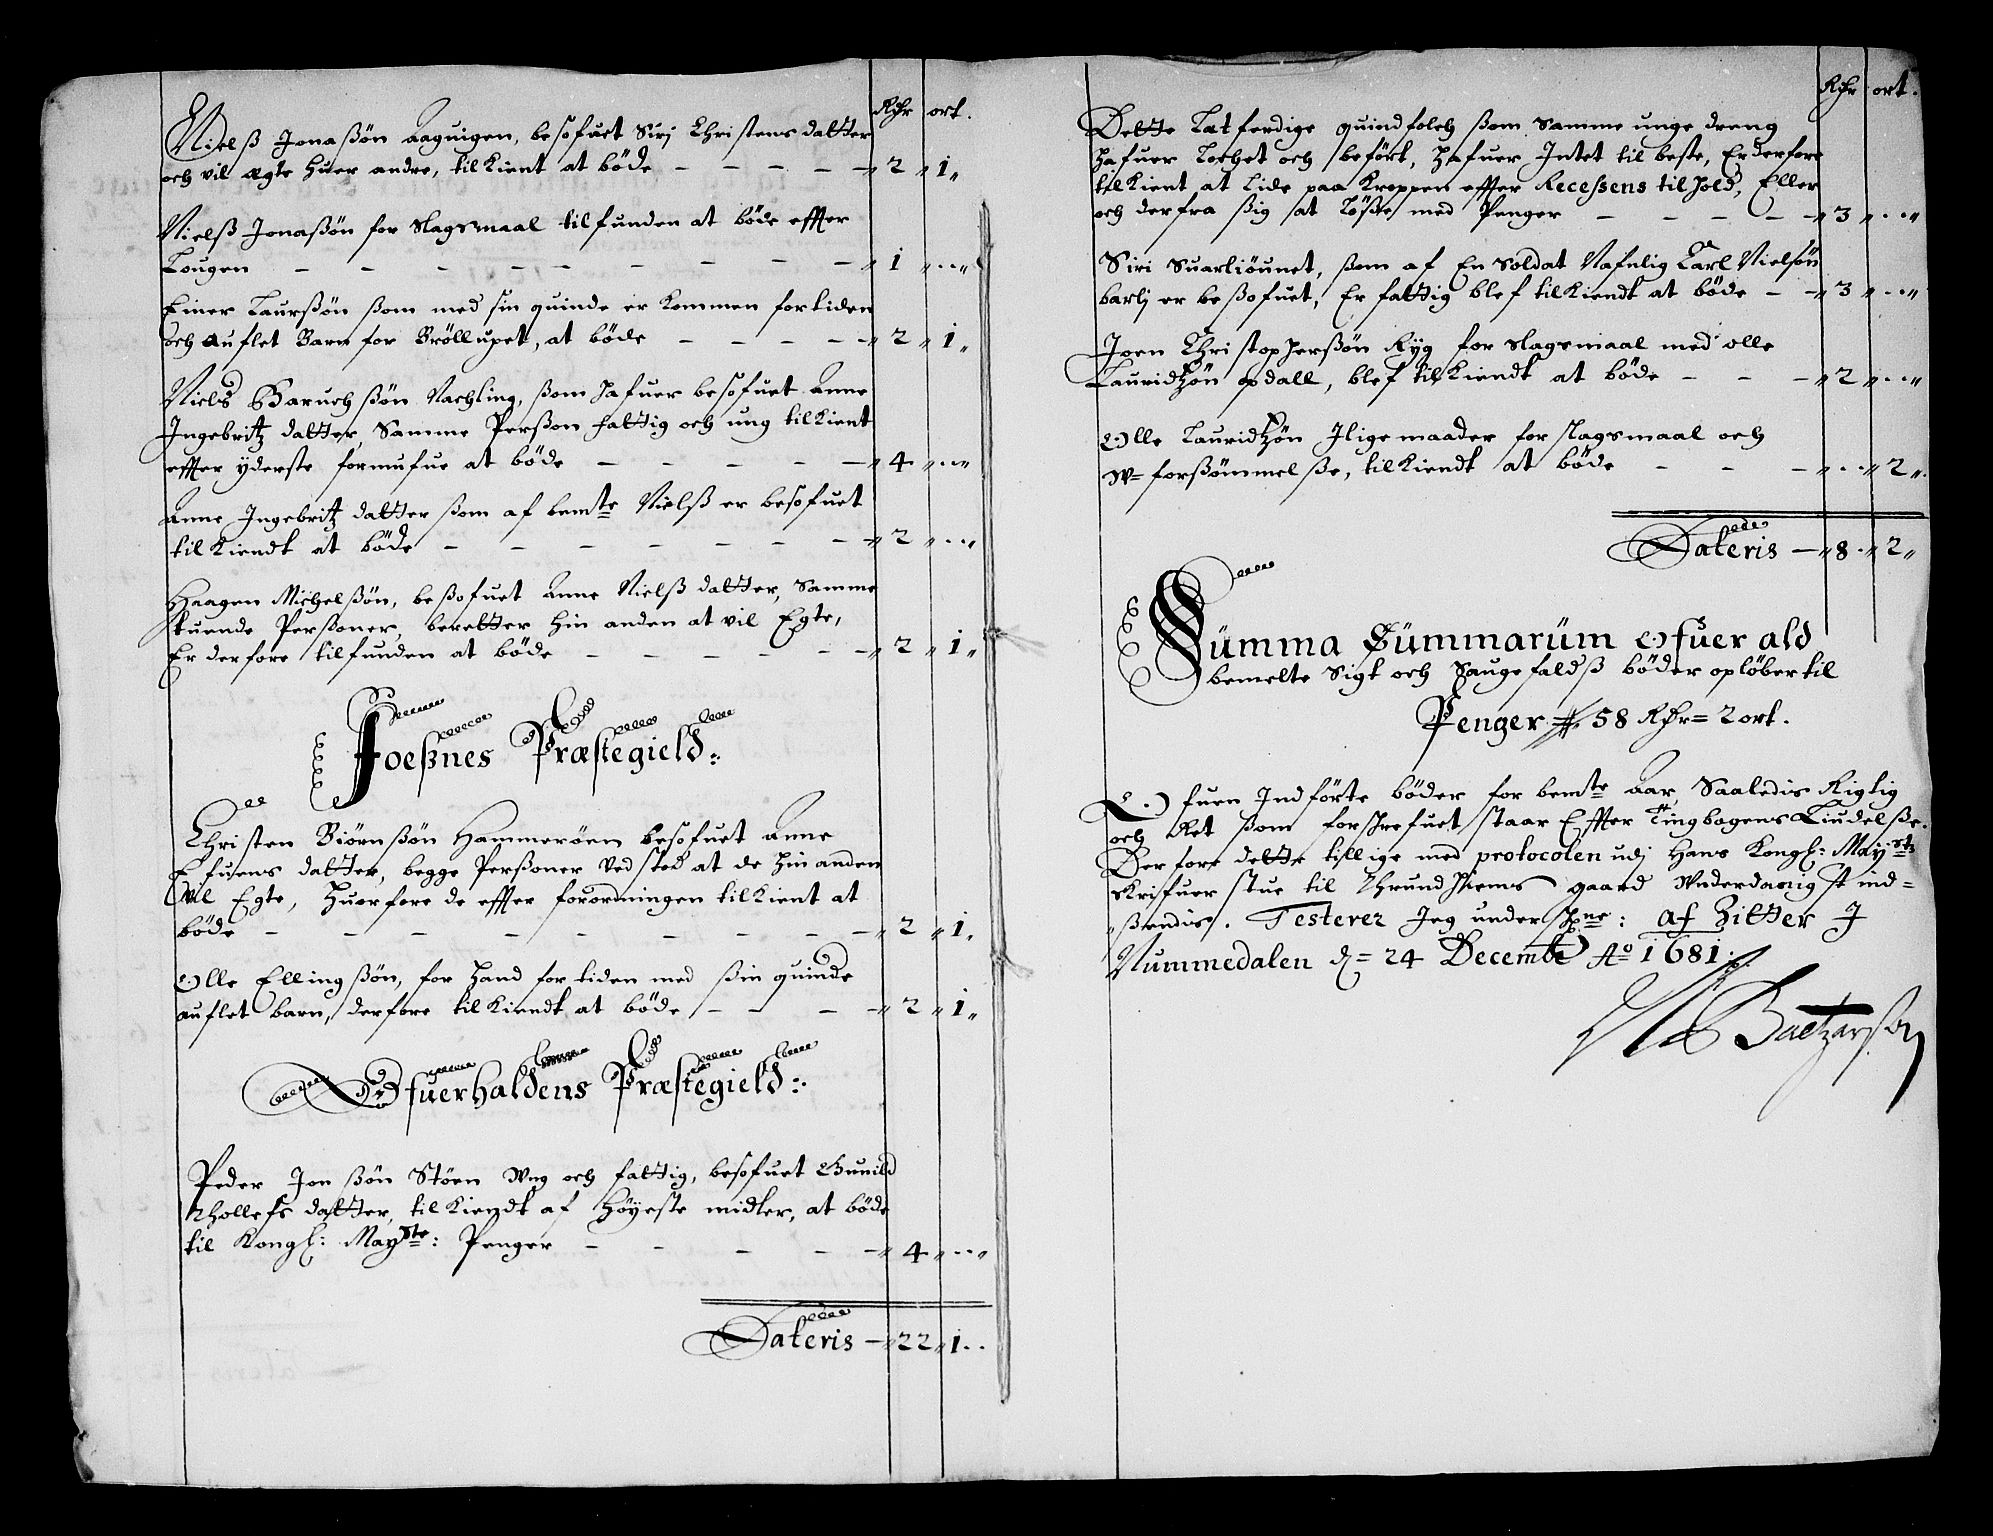 Rdr ort.
Nielß Jonaßøn Aaguigen, besofuet Siri Christens datter
och vil ægte huer andre, tilkient at bøde — — — — — „ 2 „ 1 „
Nielß Jonaßøn for slagsmaal tilfunden at bøde effter
Lougen — — — — — — — — — „ 1 „ ... „
Einer Laurßøn ßom med sin quinde er kommen for tiden
och auflet Barn for Brøllupet, at bøde — — — — — „ 2 „ 1 „
Niels Baruch ßøn Nachling, ßom hafuer besofuet Anne
Ingebritz datter, Samme Perßon fattig och ung tilkient
effter yderste formufue at bøde — — — — — „ 4 „ ... „
Anne Ingebritz datter ßom af bemte Nielß er besofuet
tilkiendt at bøde — — — — — — — „ 2 „ ... „
Haagen Michelßøn, beßofuet Anne Nielß datter, Samme
tuende Perßoner, beretter hin anden at vil Egte,
Er derfore tilfunden at bøde — — — — — „ 2 „ 1 „
Foeßnes Præstegield:
Christen Biørnßøn Hammerøen besofuet Anne
Efuens datter, begge Perßoner vedstod at de hin anden
Vil Egte, huorfore de effter forordningen tilkient at
bøde — — — — — — — — — „ 2 „ 1 „
Olle Ellingßøn, for hand for tiden med ßin quinde
auflet barn, derfore tilkiendt at bøde — — — — „ 2 „ 1 „
Ofuerhaldens Præstegield:
Peder Jonßøn Støen Ung och fattig, besofuet Gunild
Thollefs datter, tilkiendt af høyeste midler, at bøde
til Kongl: Mayste: Penger — — — — — „ 4 „ ... „
Lateris — „ 22 „ 1 ..
Rdr ort.
Dette Letferdige quindfolch ßom samme unge dreng
hafuer lochet och beført, hafuer Intet til beste, Er derfore
tilkient at lide paa kroppen effter Receßens tilhold, Eller
och derfra ßig at løße med Penger — — — — „ 3 „ ... „
Siri Suarliøunet, ßom af En Soldat Nafnlig Carl Nielsøn
barlj er beßofuet, Er fattig blef tilkiendt at bøde — — „ 3 „ ... „
Joen Christopherßøn Ryg for slagsmaal med olle
Lauridtzøn opdall, blef tilkiendt at bøde — — — „ 2 „ ... „
Olle Lauridtzøn Iligemaader for slagsmaal och
U= forßømmelße, tilkiendt at bøde — — — „ ... „ 2 „
Lateris — „ 8 „ 2 „
Summa Summarum Ofuer ald
bemelte Sigt och Saugefaldß bøder opløber til
Penger 58 Rdr = 2 ort.
Ofuen Indførte bøder for bemte Aar, Saaledis Rigtig
och Ret ßom forschrefuet staar Effter Tingbogens Liudelße.
Derfore dette tillige med protocolen udj Hans Kongl: Mayst:
skrifuer stue til Thrundhiems gaard Underdanigst ind=
ßendis. Testerer Jeg underschne: af Zitter J
Nummedalen d= 24 Decemb Ao 1681.
Baltzarsøn